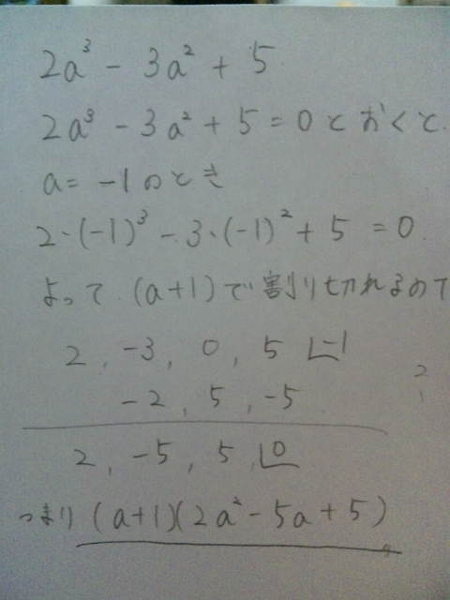 2a³ - 3a² + 5
2a³ - 3a² + 5 = 0 とおくと
a = -1 のとき
2・(-1)³ - 3・(-1)² + 5 = 0
よって (a+1)で割り切れるので
2, -3, 0, 5 -1
-2, 5, -5
2, -5, 5, 0
つまり (a+1)(2a² - 5a + 5)